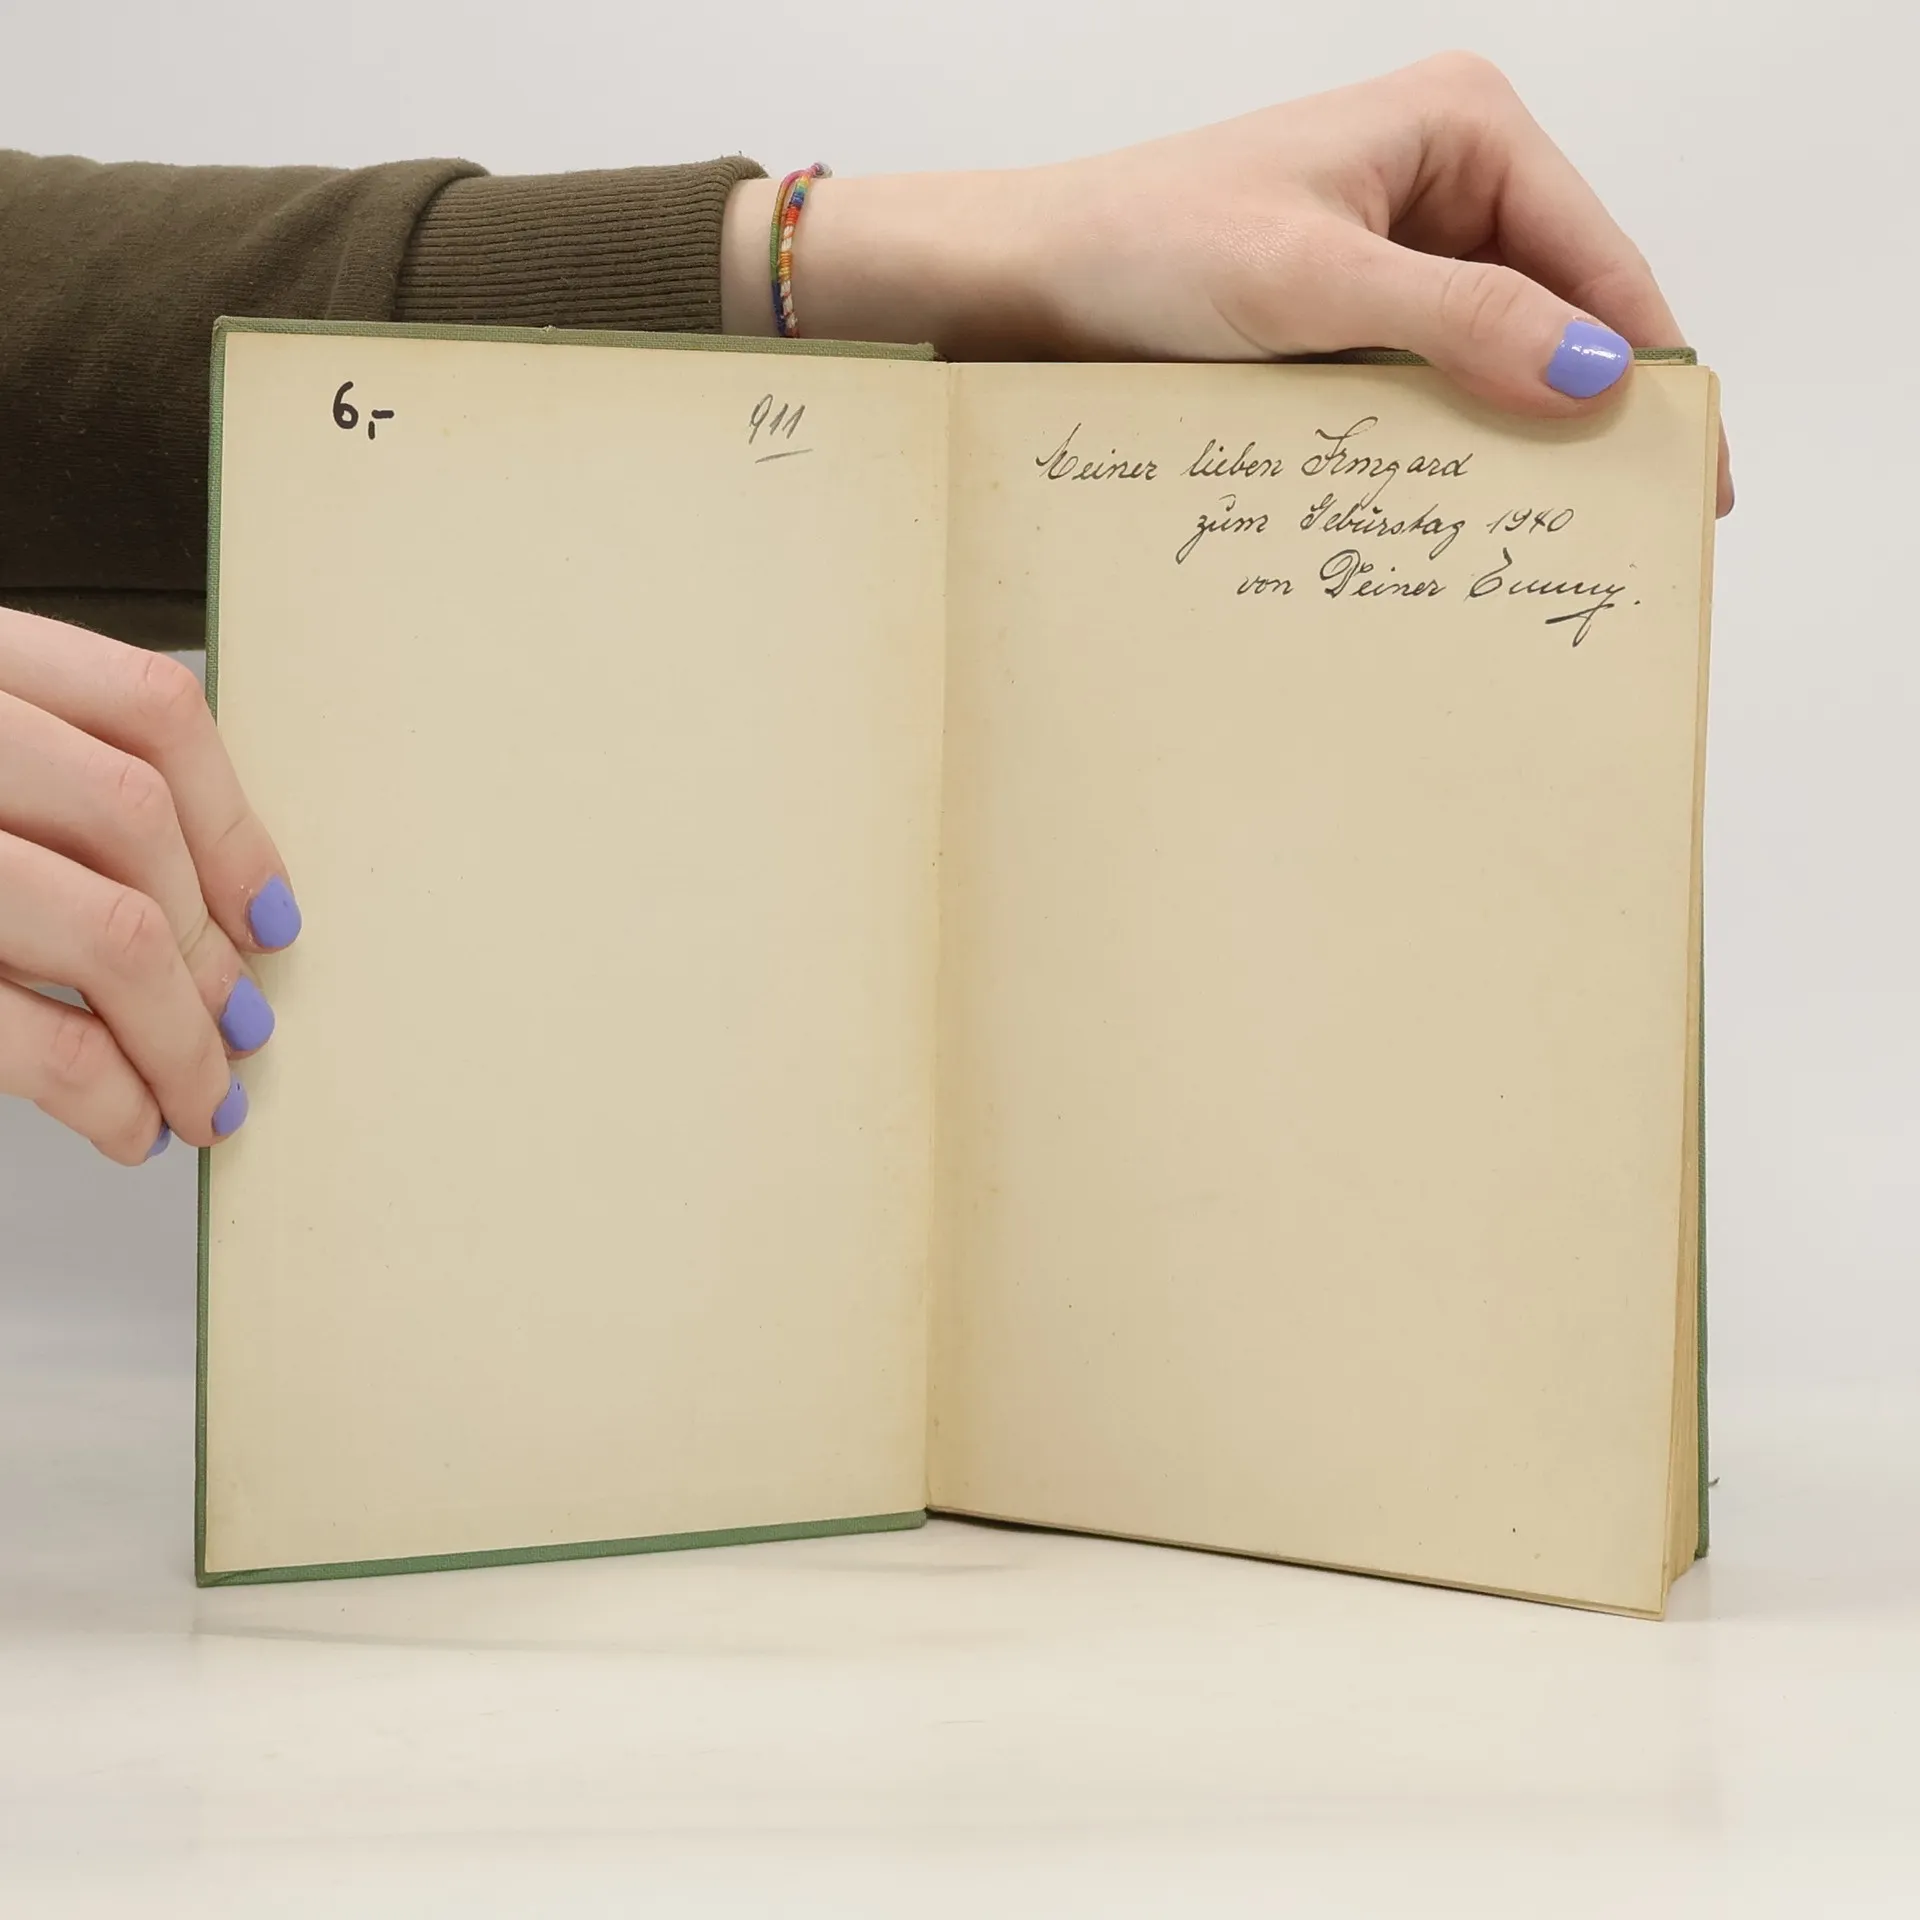 6,-
911
Meiner lieben Irmgard
zum Geburstag 1940
von Deiner Emmy.